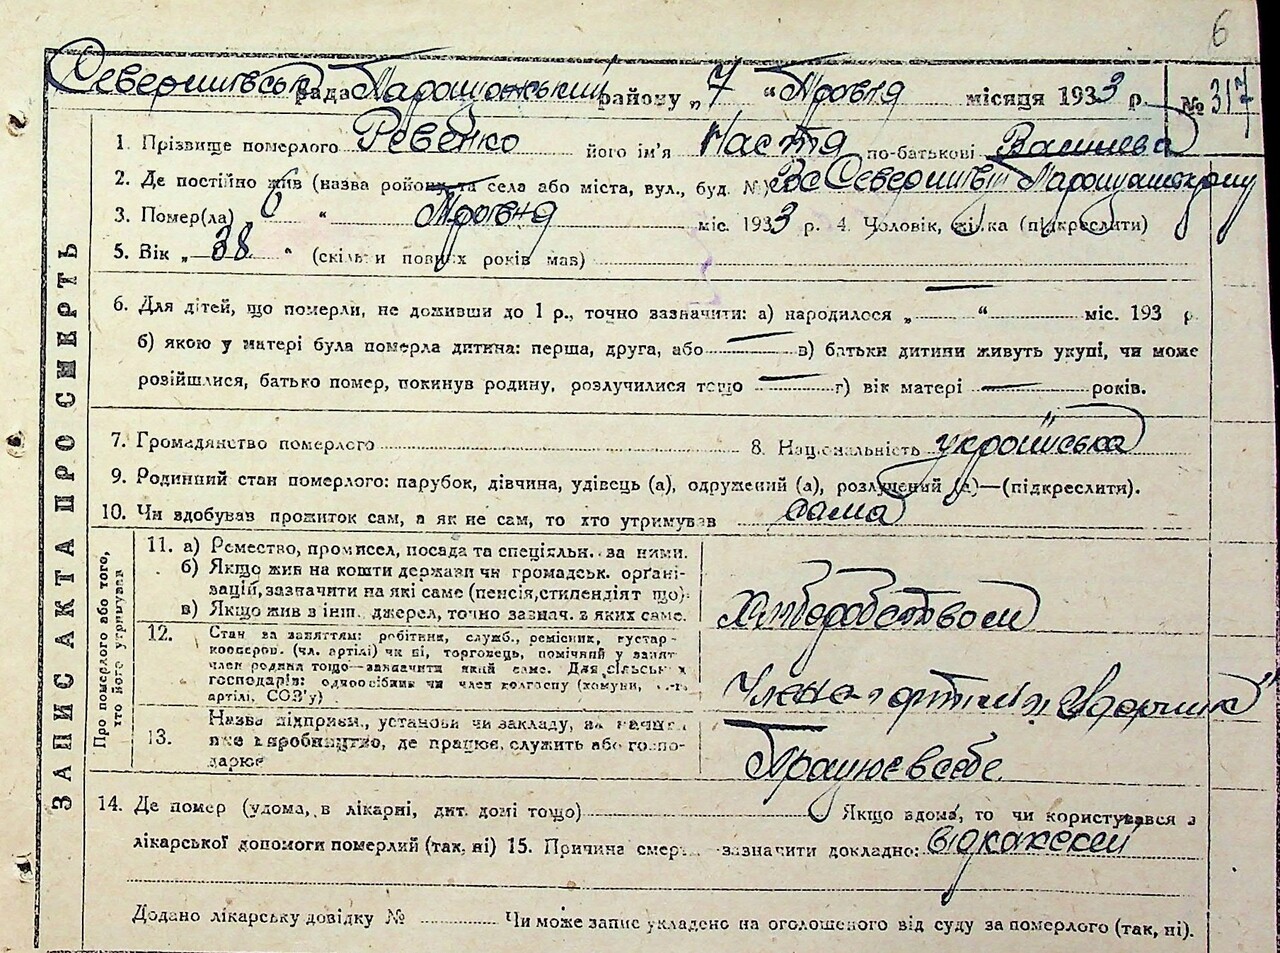 6
рада району „ 7 “ Травня місяця 1933 р. № 317
1. Прізвище померлого Ревенко його ім'я Настя по-батькові
2. Де постійно жив (назва району та села або міста, вул., буд. №)
3. Помер(ла) „ 6 “ Травня міс. 1933 р. 4. Чоловік, жінка (підкреслити)
5. Вік „ 38 “ (скільки повних років мав)
6. Для дітей, що померли, не доживши до 1 р., точно зазначити: а) народилося „ — “ міс. 193 р.
б) якою у матері була померла дитина: перша, друга, або — в) батьки дитини живуть укупі, чи може
розійшлися, батько помер, покинув родину, розлучилися тощо — г) вік матері — років.
7. Громадянство померлого 8. Національність українська
9. Родинний стан померлого: парубок, дівчина, удівець (а), одружений (а), розлучений (а)—(підкреслити).
10. Чи здобував прожиток сам, а як не сам, то хто утримував сама
ЗАПИС АКТА ПРО СМЕРТЬ
Про померлого або того,
хто його утримував
11. а) Ремество, промисел, посада та спеціяльн. за ними.
б) Якщо жив на кошти держави чи громадськ. органі-
зацій, зазначити на які саме (пенсія, стипендіят що):
в) Якщо жив з інш. джерел, точно зазнач. з яких саме.
Хліборобством
12. Стан за заняттям: робітник, служб., ремісник, кустар-
кооперов. (чл. артілі) чи ні, торговець, помічний у занят
член родини тощо—зазначити який саме. Для сільськ х
господарів: одноосібник чи член колгоспу (комуни,
артілі, СОЗ'у)
Член артілі Ударник
13. Назва підприєм., установи чи закладу, як
яке виробництво, де працює, служить або госпо-
дарює
Працює в себе
14. Де помер (удома, в лікарні, дит. домі тощо) Якщо вдома, то чи користувався з
лікарської допомоги померлий (так, ні) 15. Причина смерт зазначити докладно:
Додано лікарську довідку № Чи може запис укладено на оголошеного від суду за померлого (так, ні).